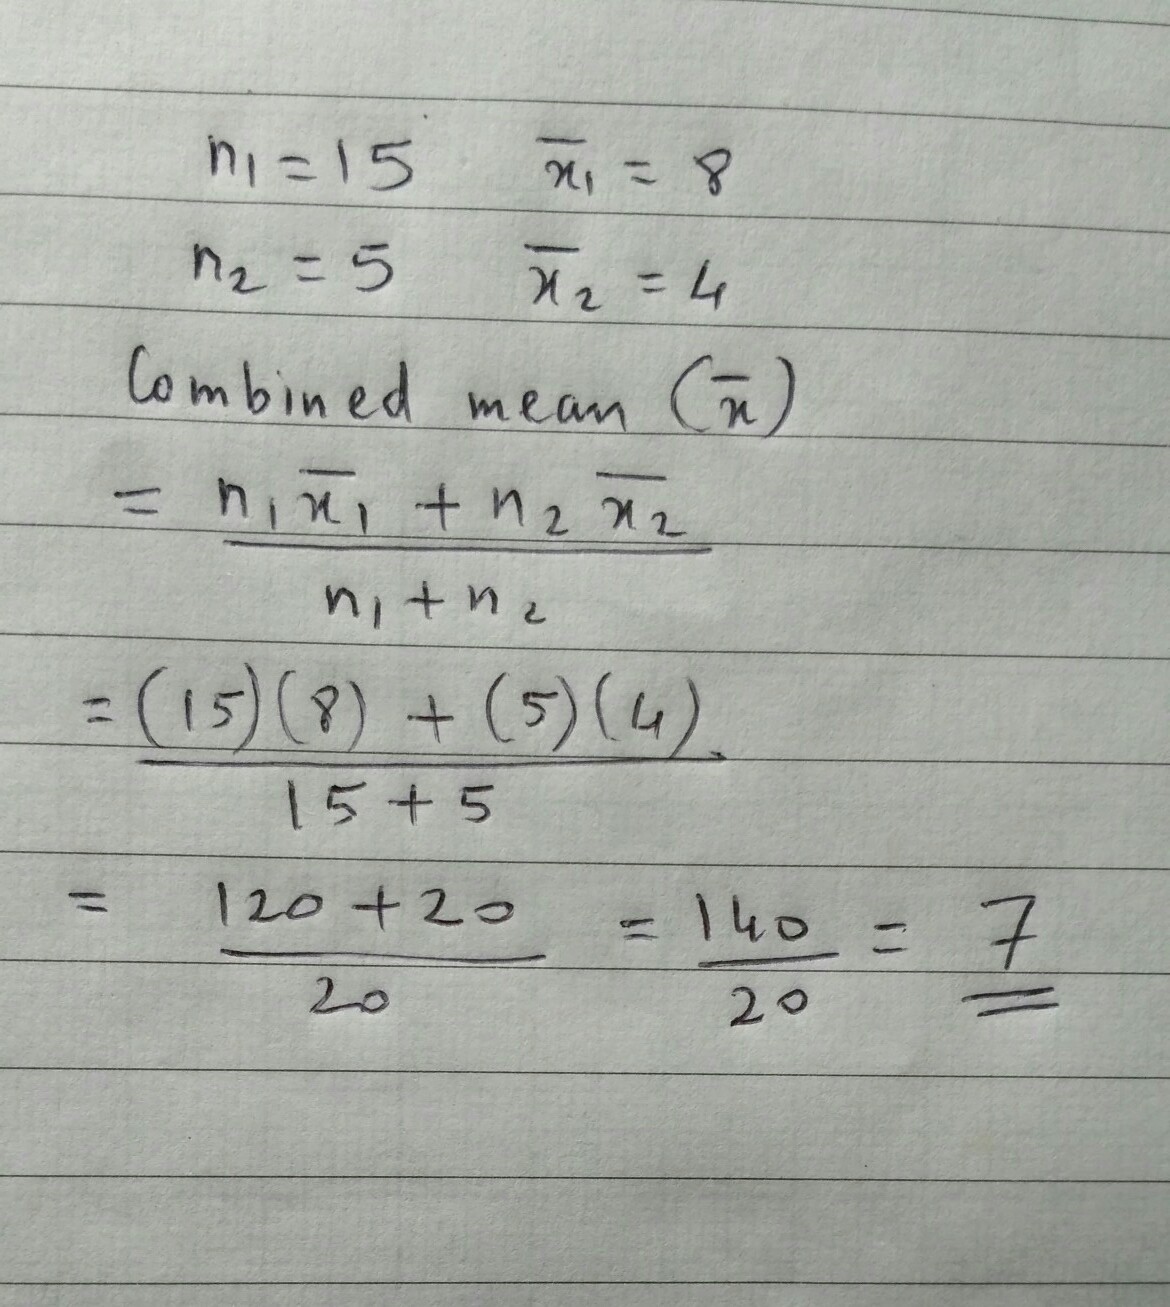 n₁ = 15 x̄₁ = 8
n₂ = 5 x̄₂ = 4
Combined mean (x̄)
= n₁x̄₁ + n₂x̄₂
n₁ + n₂
= (15)(8) + (5)(4)
15 + 5
= 120 + 20 = 140 = 7
20 20